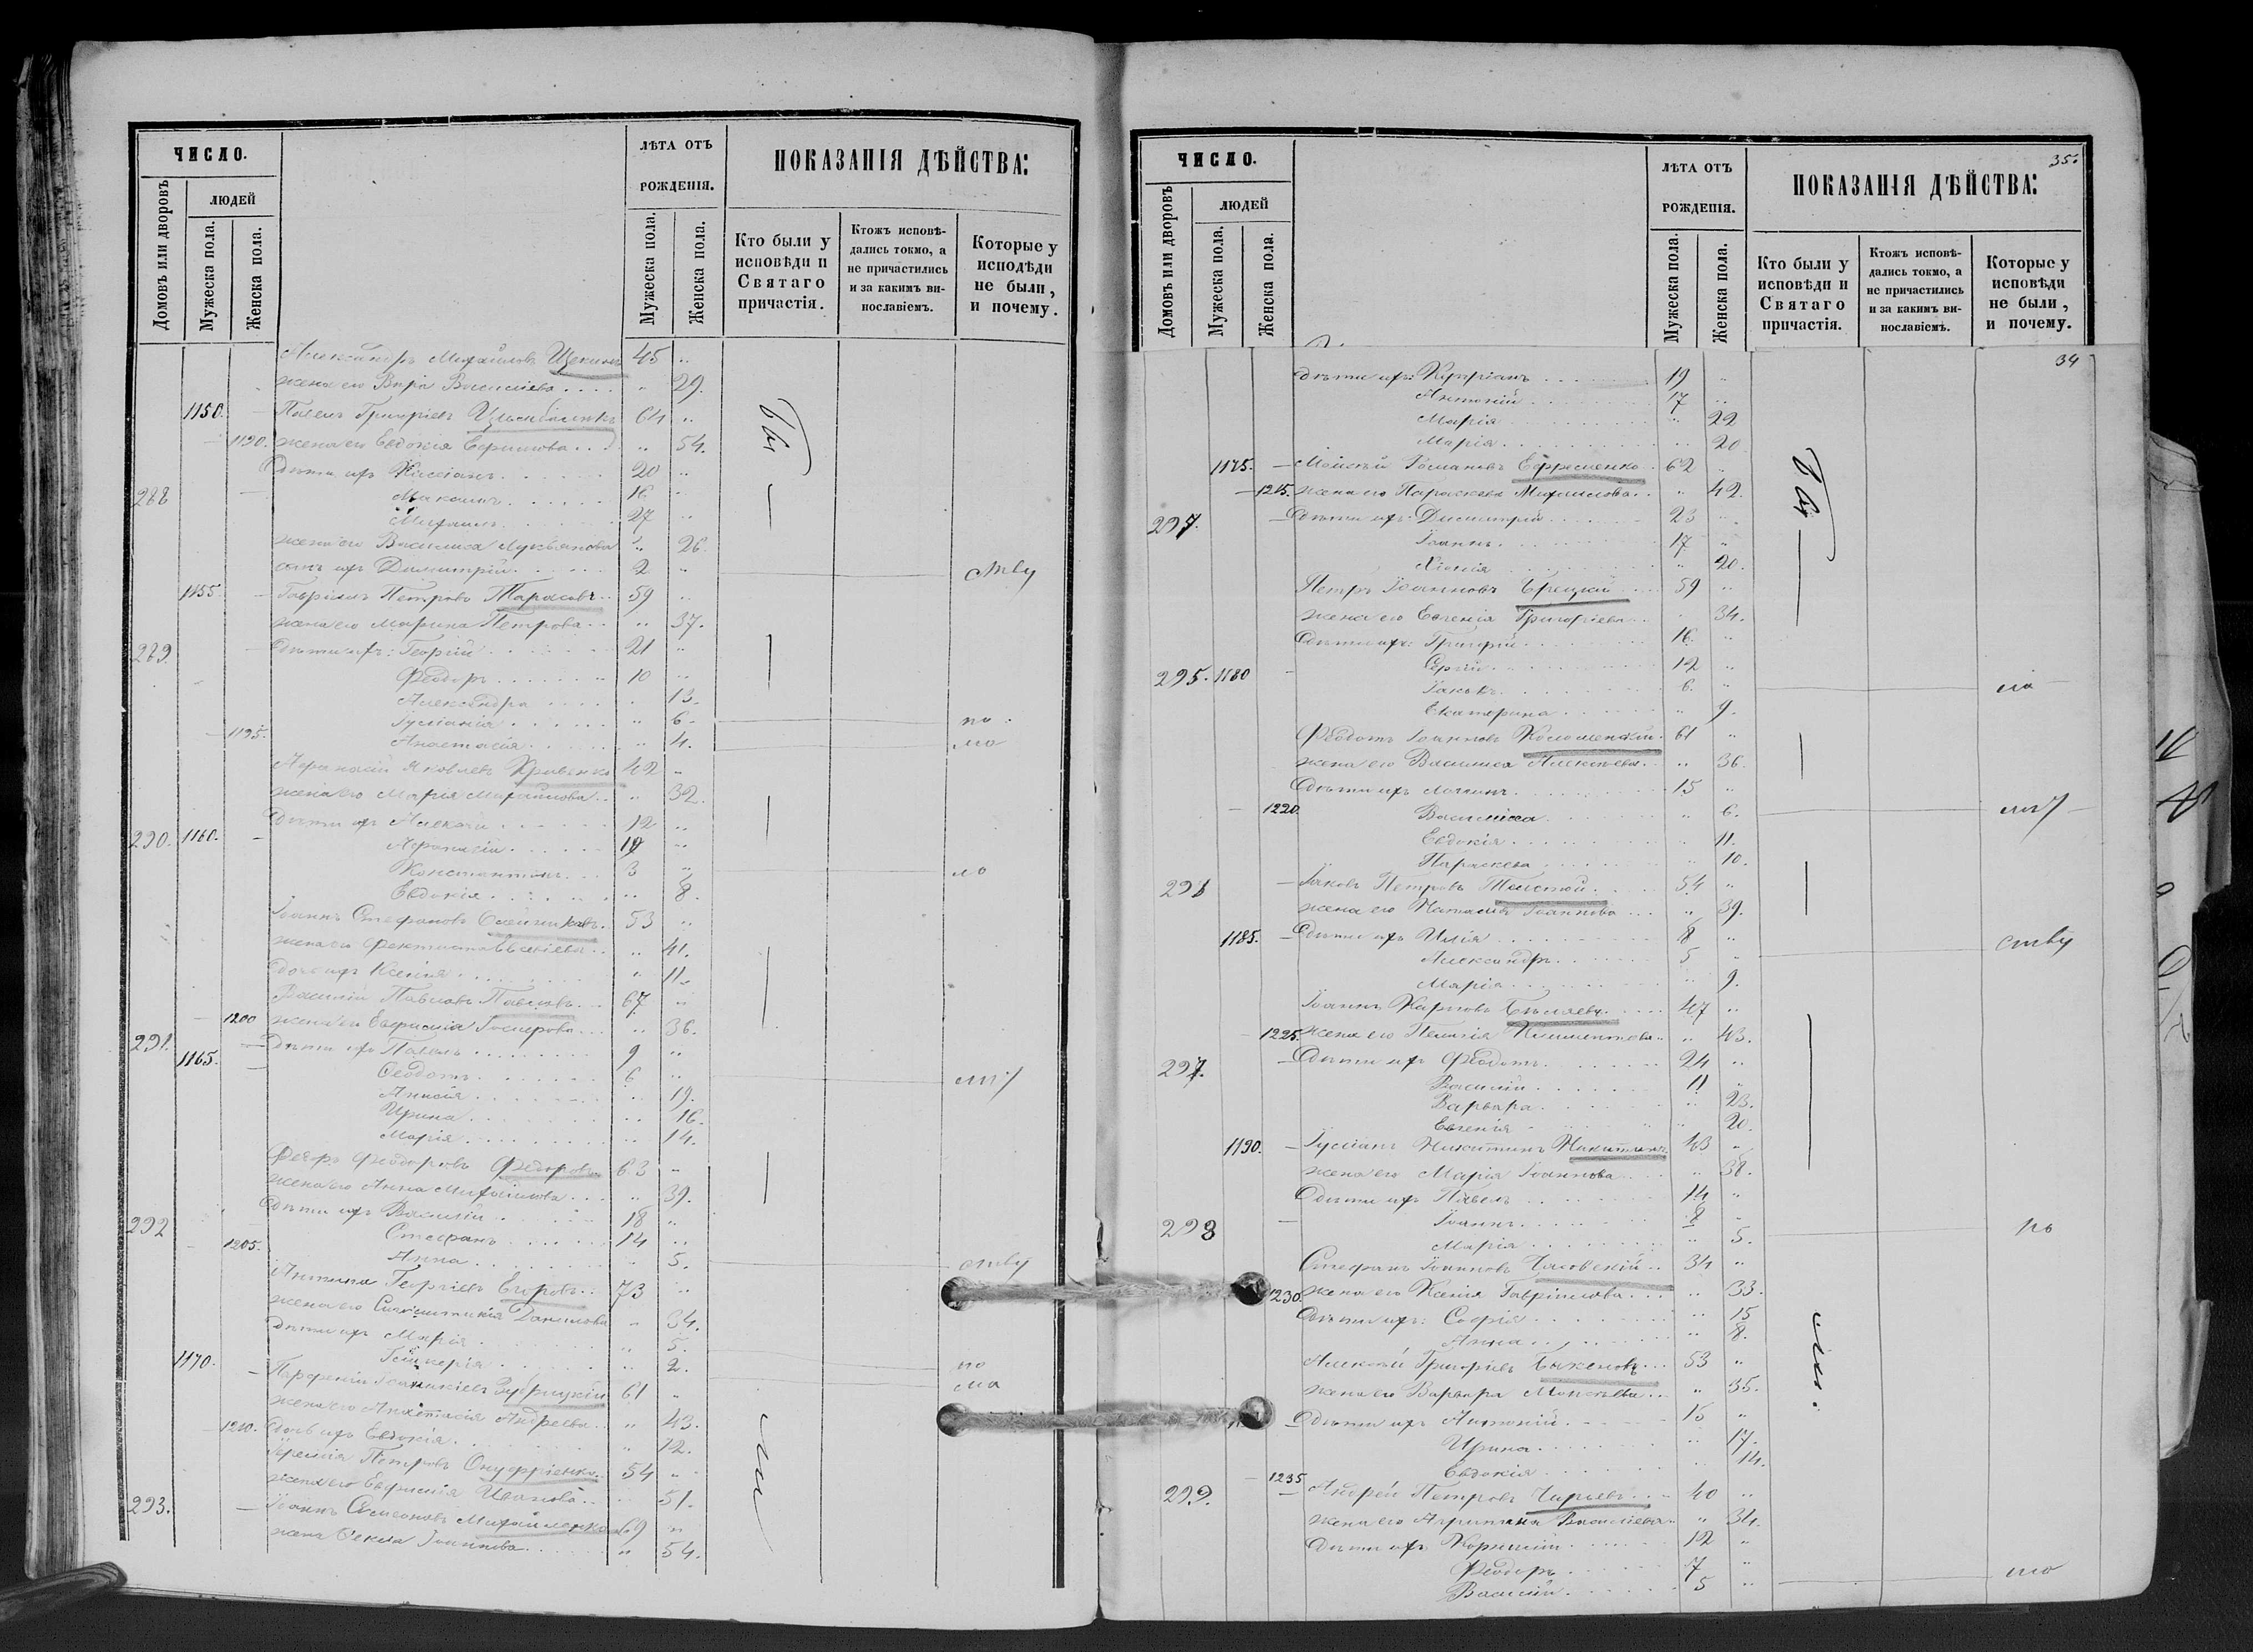 ЧИСЛО.
ЛѢТА ОТЪ РОЖДЕНІЯ.
ПОКАЗАНІЯ ДѢЙСТВА:
Домовъ или дворовъ
ЛЮДЕЙ
Мужеска пола.
Женска пола.
Мужеска пола.
Женска пола.
Кто были у исповѣди и Святаго причастія.
Ктожъ исповѣдались токмо, а не причастились и за какимъ винославіемъ.
Которые у исподѣди не были, и почему.
Александръ Михайловъ Щекинъ 45 "
жена его Вѣра Васильева " 29.
1150. Павелъ Григоріевъ 64 "
1190. жена его Евдокія Ефимова " 54.
дѣти ихъ Кассіанъ 20 "
288 Максимъ 16 "
Михаилъ 27 "
жена его Василиса Лукьянова " 26.
сынъ ихъ Димитрій 2 "
1155. Гавріилъ Петровъ Тарасовъ 59 "
жена его Марина Петрова " 37.
289. дѣти ихъ: Георгій 21 "
Феодоръ 10 "
Александра " 13.
Іуліанія " 6. по
1195. Анастасія " 4. мо
Афанасій Яковлевъ Кривенко 42 "
жена его Марія Михайлова " 32.
дѣти ихъ Алексѣй 12 "
290. 1160. Афанасій 10 "
Константинъ 3 "
Евдокія " 8.
Іоаннъ Стефановъ Олейниковъ 53 "
жена его Феоктиста Евсевіева " 41.
дочь ихъ Ксенія " 11.
Василій Павловъ Павловъ 67 "
1200 жена его Евфимія " 36.
291. дѣти ихъ Павелъ 9 "
1165. Феодотъ 6 "
Анисія " 19.
Ирина " 16.
Марія " 14.
Феодоръ Феодоровъ Федоровъ 63 "
жена его Анна Михайлова " 39.
дѣти ихъ Василій 18 "
292 Стефанъ 14 "
1205. Анна " 5.
Антипа Георгіевъ Егоровъ 73 "
жена его Синклитикія Данилова " 34.
дѣти ихъ Марія " 5.
1170. Гликерія " 2. по
Парфеній Іоанникіевъ Зубрицкій 61 "
жена его Анастасія Андреева " 43.
1210. дочь ихъ Евдокія " 12.
Іеремія Петровъ Онуфріенко 54 "
жена его Евфимія Иванова " 51.
293. Іоаннъ Симеоновъ Михайленко 69 "
жена Ѳекла Іоаннова " 54.
35.
ЧИСЛО.
ЛѢТА ОТЪ РОЖДЕНІЯ.
ПОКАЗАНІЯ ДѢЙСТВА:
Домовъ или дворовъ
ЛЮДЕЙ
Мужеска пола.
Женска пола.
Мужеска пола.
Женска пола.
Кто были у исповѣди и Святаго причастія.
Ктожъ исповѣдались токмо, а не причастились и за какимъ винославіемъ.
Которые у исповѣди не были, и почему.
34
дѣти ихъ: Кипріанъ 19 "
Антоній 17 "
Марія " 22
Марія " 20
1175. Моисей Романовъ Ефременко 62 "
1215. жена его Параскева Михайлова " 42.
дѣти ихъ: Димитрій 23 "
Іоаннъ 17 "
Ксенія " 20.
Петръ Іоанновъ Грецкій 59 "
жена его Евгенія Григоріева " 34.
дѣти ихъ: Григорій 16. "
295. 1180 Сергій 12 "
Іаковъ 6. "
Екатерина " 9.
Феодотъ Іоанновъ Коломенскій 61 "
жена его Василиса Алексѣева " 36.
дѣти ихъ 15 "
1220. Василиса " 6.
Евдокія " 11.
Параскева " 10.
Іаковъ Петровъ Толстой 54 "
жена его Наталія Іоаннова " 39.
1185. дѣти ихъ Илія 8 "
Александръ 5 "
Марія " 9.
Іоаннъ Карповъ Бѣляевъ 47 "
1225. жена его Пелагія Климентова " 43.
297. дѣти ихъ Феодотъ 24 "
Василій 11 "
Варвара " 23.
Евгенія " 20.
1190. Іуліанъ Никитинъ Никитинъ 43 "
жена его Марія Іоаннова " 38.
дѣти ихъ Павелъ 14 "
298 Іоаннъ 8 "
Марія " 5.
Стефанъ Іоанновъ Часовскій 34 "
1230. жена его Ксенія Гавріилова " 33.
дѣти ихъ: Софія " 15
Анна " 8.
Алексѣй Григоріевъ 53 "
жена его Варвара Моисѣева " 35.
дѣти ихъ Антоній 15 "
Ирина " 17.
Евдокія " 14.
1235
299. Андрей Петровъ 40 "
жена его Агрипина Васильева " 34.
дѣти ихъ Корнилій 12 "
Феодоръ 7 "
Василій 5 "